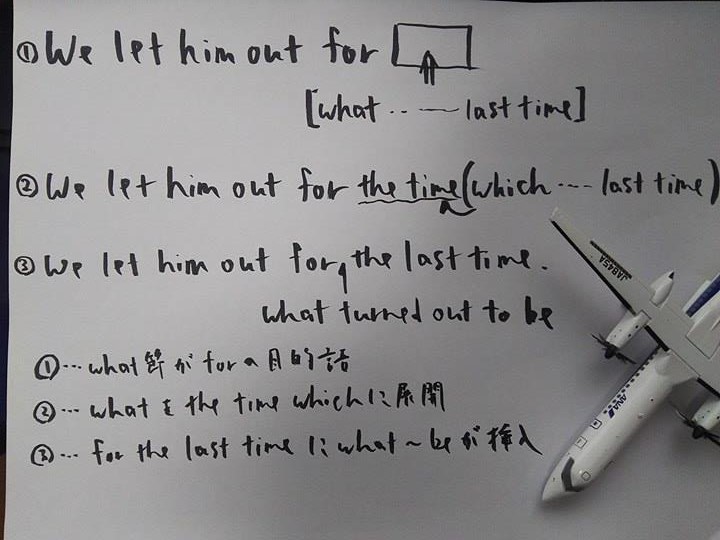 ①We let him out for
[what ‥ — last time]
②We let him out for the time(which --- last time)
③We let him out for, the last time.
what turned out to be
①…what節がforの目的語
②…whatをthe time whichに展開
③…for the last timeにwhat~beが挿入
JA845A
ANA